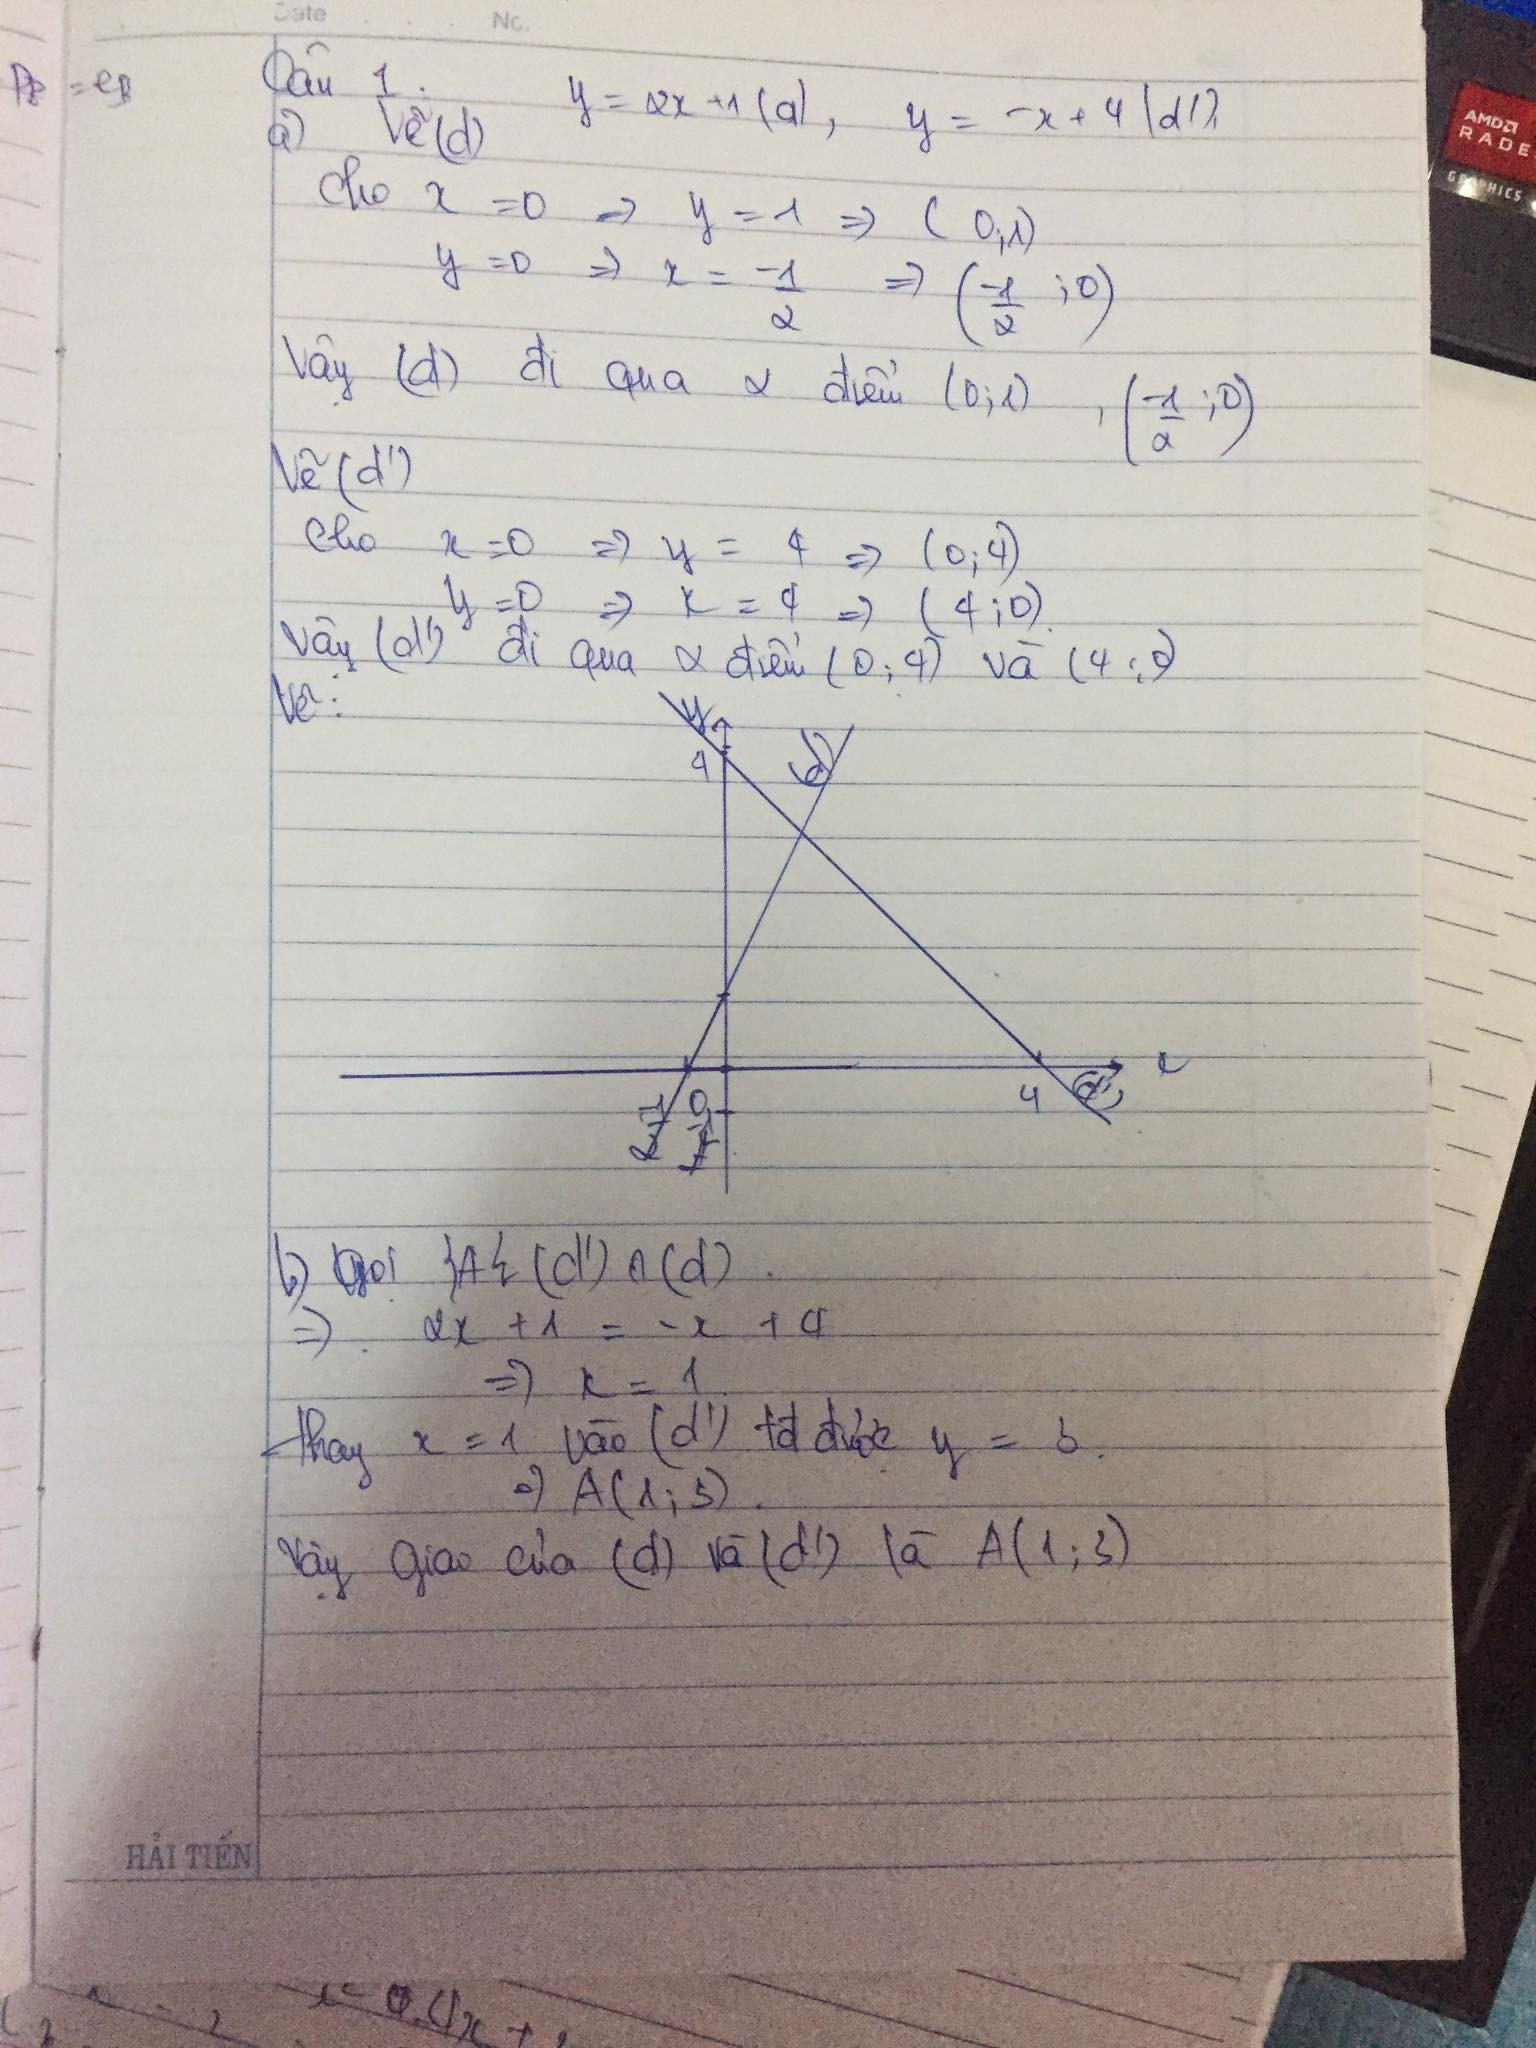 Date No.
Câu 1.
y = 2x+1 (d), y = -x+4 (d').
a) Vẽ (d)
Cho x =0 => y = 1 => (0;1)
y =0 => x = -1/2 => (-1/2 ;0)
Vậy (d) đi qua 2 điểm (0;1) , (-1/2 ;0)
Vẽ (d')
Cho x =0 => y = 4 => (0;4)
y =0 => x = 4 => (4;0).
Vậy (d') đi qua 2 điểm (0;4) và (4;0)
Vẽ:
y
4
(d)
-1/2
0
4
(d')
x
b) Gọi }A{ (d') ∩ (d).
=> 2x +1 = -x +4
=> x = 1
Thay x = 1 vào (d') ta được y = 3.
=> A(1;3).
Vậy giao của (d) và (d') là A(1;3)
HẢI TIẾN
AMD
RADE
GRAPHICS